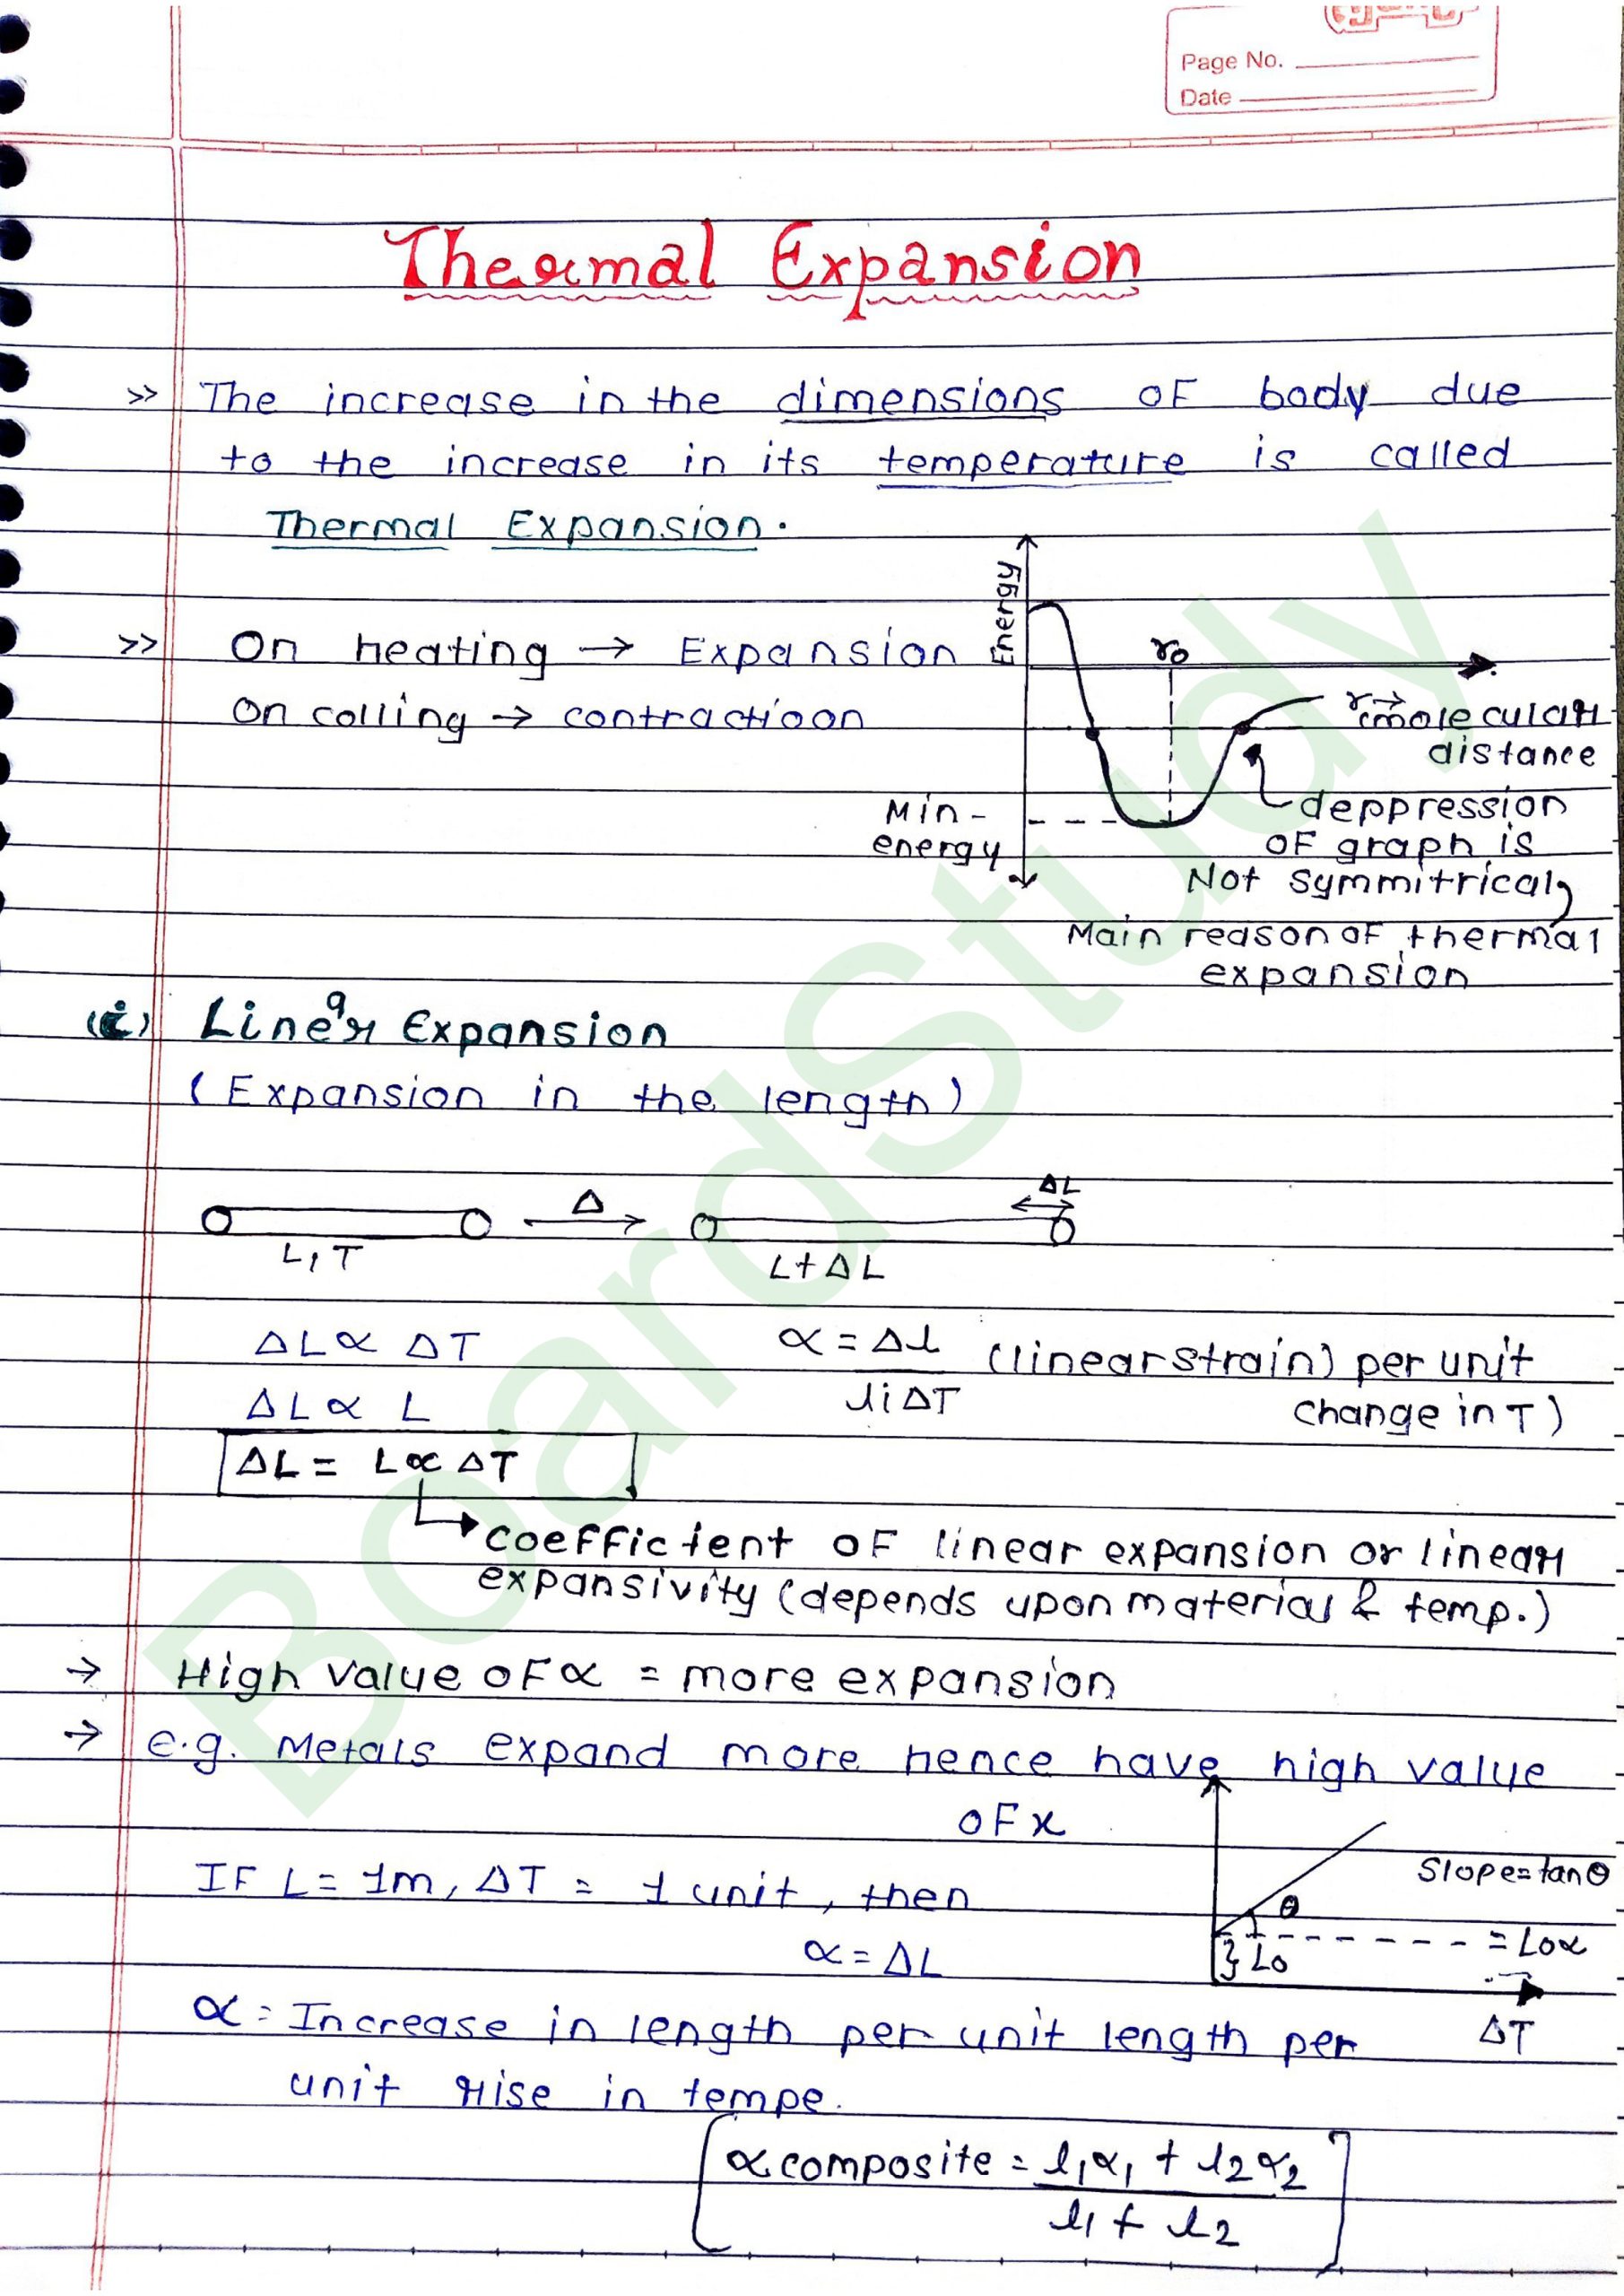 Page No.
Date
Thermal Expansion
>> The increase in the dimensions of body due
to the increase in its temperature is called
Thermal Expansion.
>> On heating → Expansion
On colling → contractioon
Energy
r₀
r→
molecular
distance
Min-
energy
deppression
of graph is
Not symmitrical,
Main reason of thermal
expansion
(i) Linear Expansion
(Expansion in the length)
Δ
ΔL
L, T
L+ΔL
ΔL ∝ ΔT
ΔL ∝ L
ΔL = L∝ ΔT
∝ = Δl (linear strain) per unit
liΔT change in T)
coefficient of linear expansion or linear
expansivity (depends upon material & temp.)
→ High value of ∝ = more expansion
→ e.g. Metals expand more hence have high value
of x
If L = 1m, ΔT = 1 unit, then
∝ = ΔL
Slope = tanθ
θ
= L₀∝
} L₀
ΔT
∝ = Increase in length per unit length per
unit rise in tempe.
∝ composite = l₁∝₁ + l₂∝₂
l₁ + l₂
BoardStudy